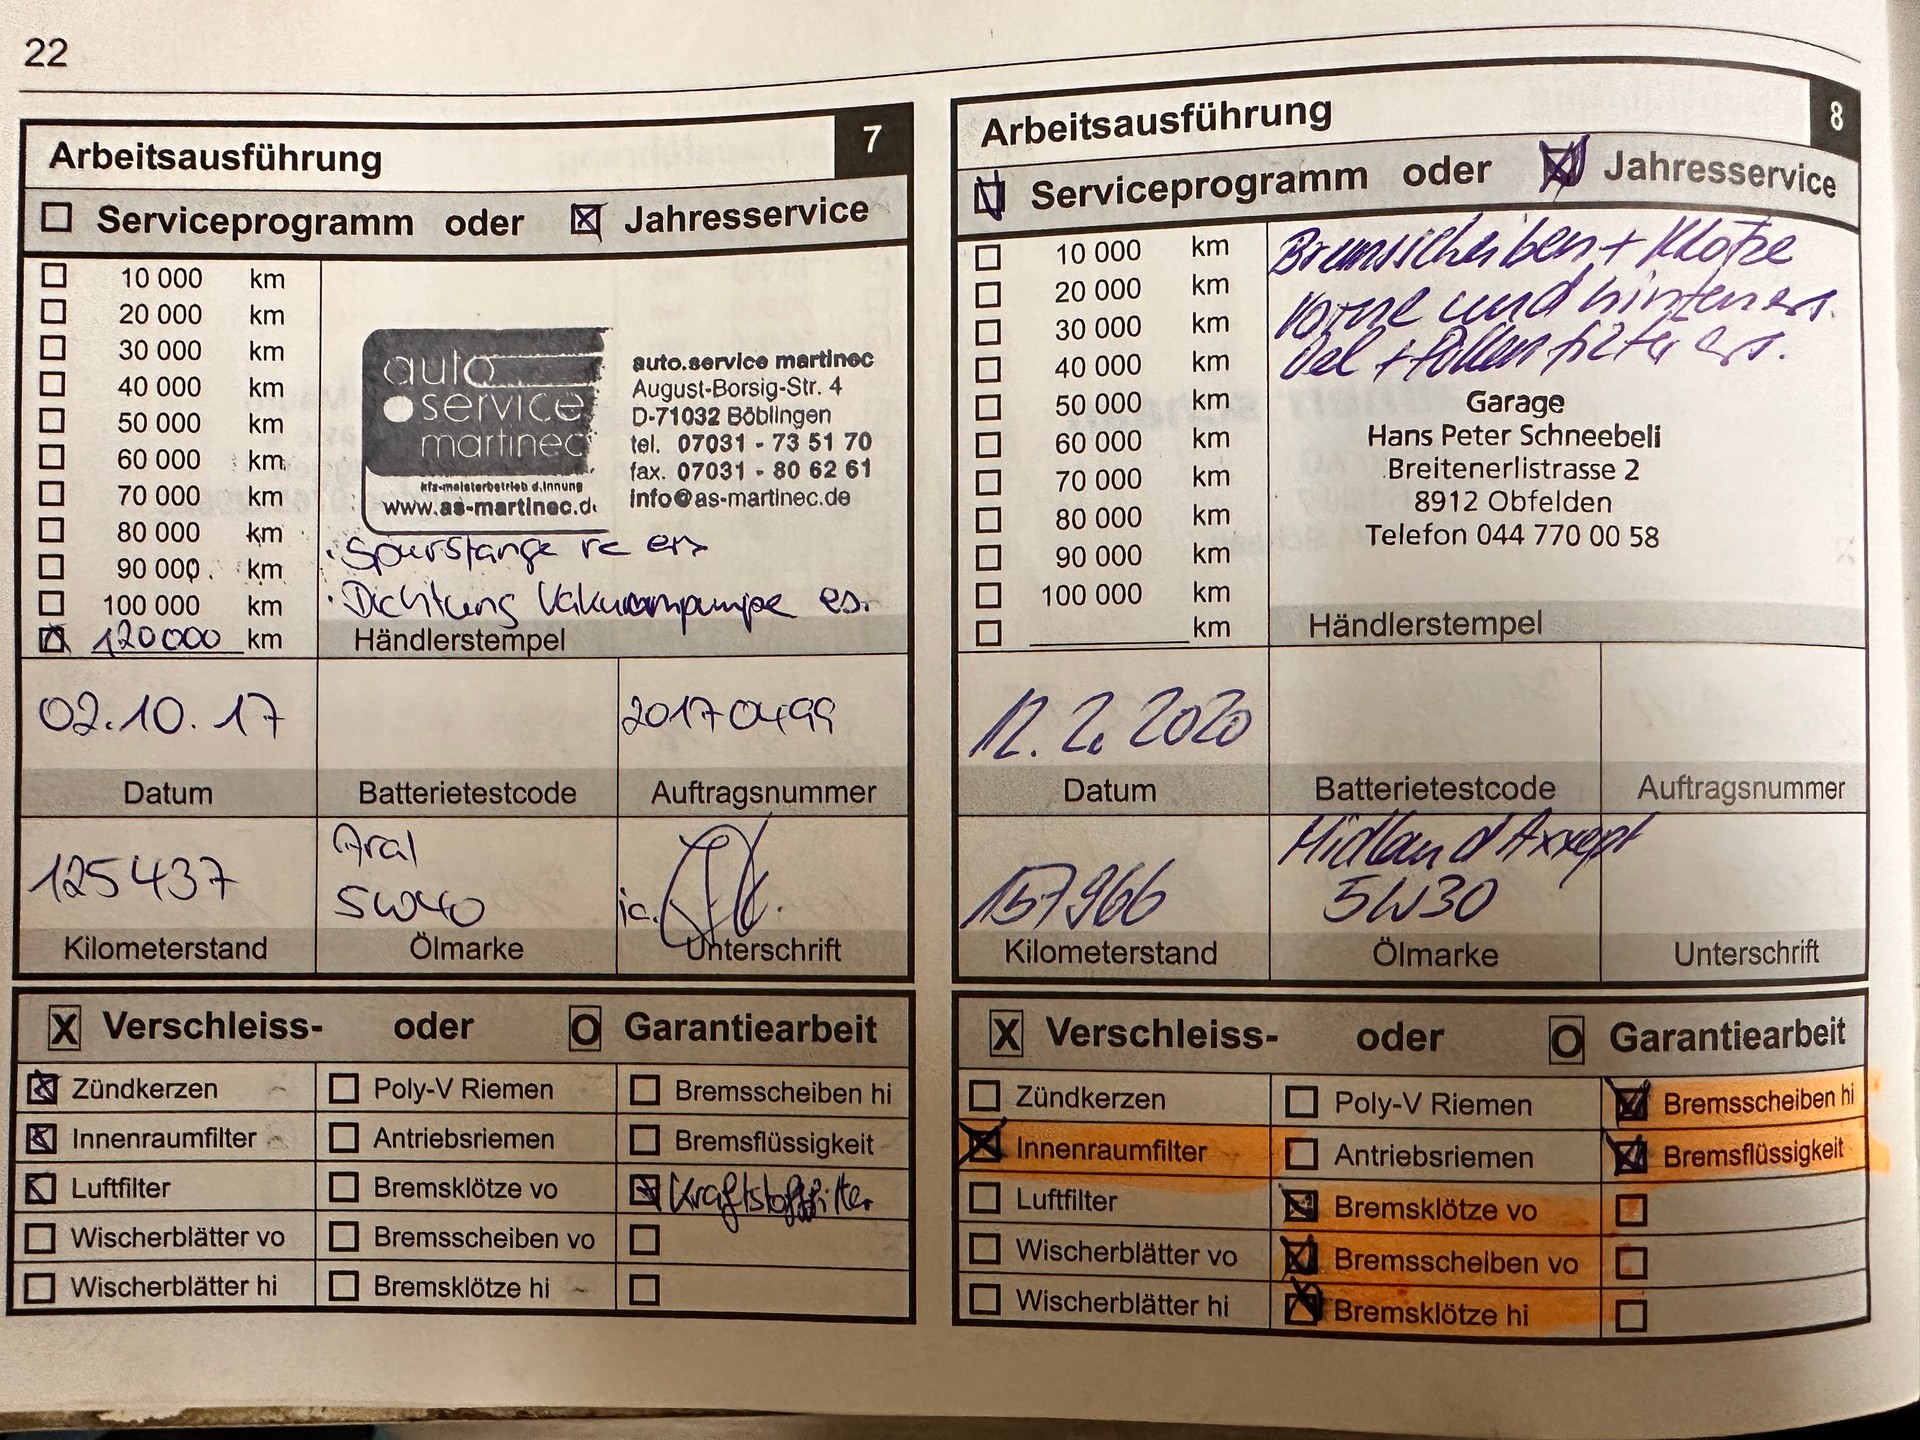 22
Arbeitsausführung 7
Serviceprogramm oder Jahresservice
10 000 km
20 000 km
30 000 km
40 000 km
50 000 km
60 000 km
70 000 km
80 000 km
90 000 km
100 000 km
120000 km
auto
service
martinec
kfz-meisterbetrieb d.innung
www.as-martinec.d
auto.service martinec
August-Borsig-Str. 4
D-71032 Böblingen
tel. 07031 - 73 51 70
fax. 07031 - 80 62 61
info@as-martinec.de
· Spurstange re ers
· Dichtung Vakuumpumpe es.
Händlerstempel
02.10.17 20170499
Datum Batterietestcode Auftragsnummer
125437 Aral
5W40
Kilometerstand Ölmarke Unterschrift
X Verschleiss- oder O Garantiearbeit
Zündkerzen Poly-V Riemen Bremsscheiben hi
Innenraumfilter Antriebsriemen Bremsflüssigkeit
Luftfilter Bremsklötze vo Kraftstofffilter
Wischerblätter vo Bremsscheiben vo
Wischerblätter hi Bremsklötze hi
Arbeitsausführung 8
Serviceprogramm oder Jahresservice
10 000 km
20 000 km
30 000 km
40 000 km
50 000 km
60 000 km
70 000 km
80 000 km
90 000 km
100 000 km
km
Bremsscheiben + Klötze
vorne und hinten ers.
Oel + Pollenfilter ers.
Garage
Hans Peter Schneebeli
Breitenerlistrasse 2
8912 Obfelden
Telefon 044 770 00 58
Händlerstempel
12. 2. 2020
Datum Batterietestcode Auftragsnummer
157966 Midland Axxept
5W30
Kilometerstand Ölmarke Unterschrift
X Verschleiss- oder O Garantiearbeit
Zündkerzen Poly-V Riemen Bremsscheiben hi
Innenraumfilter Antriebsriemen Bremsflüssigkeit
Luftfilter Bremsklötze vo
Wischerblätter vo Bremsscheiben vo
Wischerblätter hi Bremsklötze hi